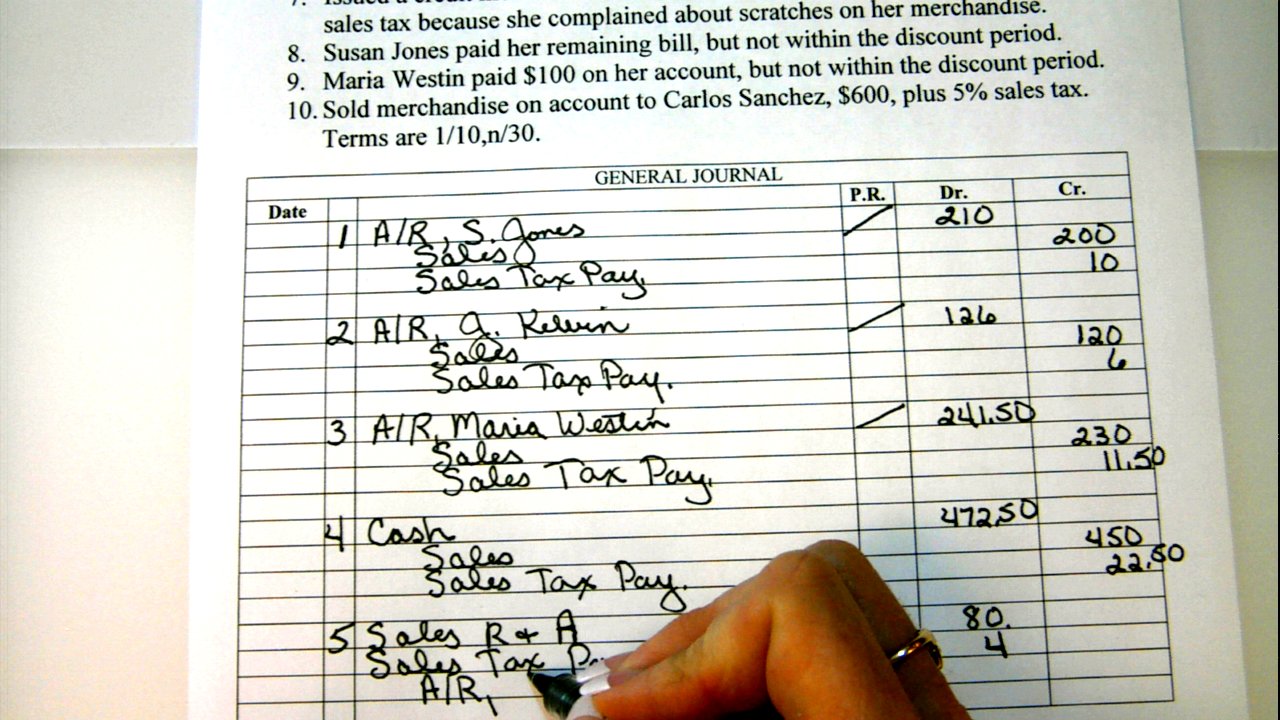 7. Issued a credit
sales tax because she complained about scratches on her merchandise.
8. Susan Jones paid her remaining bill, but not within the discount period.
9. Maria Westin paid $100 on her account, but not within the discount period.
10. Sold merchandise on account to Carlos Sanchez, $600, plus 5% sales tax.
Terms are 1/10,n/30.
GENERAL JOURNAL
Date P.R. Dr. Cr.
1 A/R, S. Jones 210
Sales 200
Sales Tax Pay. 10
2 A/R, A. Kelvin 126
Sales 120
Sales Tax Pay. 6
3 A/R, Maria Westin 241.50
Sales 230
Sales Tax Pay. 11.50
4 Cash 472.50
Sales 450
Sales Tax Pay. 22.50
5 Sales R & A 80.
Sales Tax Pa 4
A/R,